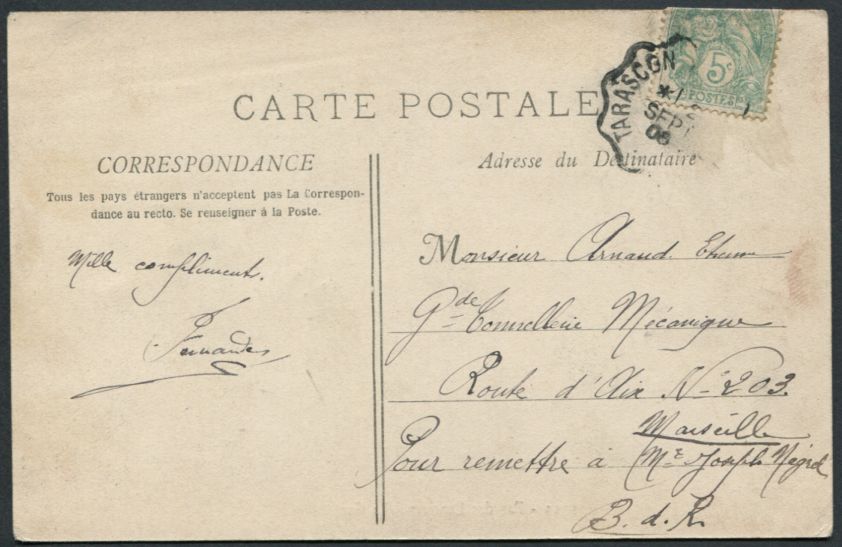 CARTE POSTALE
5c
POSTES
TARASCON
SEPT
06
CORRESPONDANCE
Tous les pays étrangers n'acceptent pas La Correspon-
dance au recto. Se renseigner à la Poste.
Mille compliments.
Fernandes
Adresse du Destinataire
Monsieur Arnaud
Gde Tonnellerie Mécanique
Route d'Aix N- 203.
Marseille
Pour remettre à Mr Joseph Négrel
B. d. R.